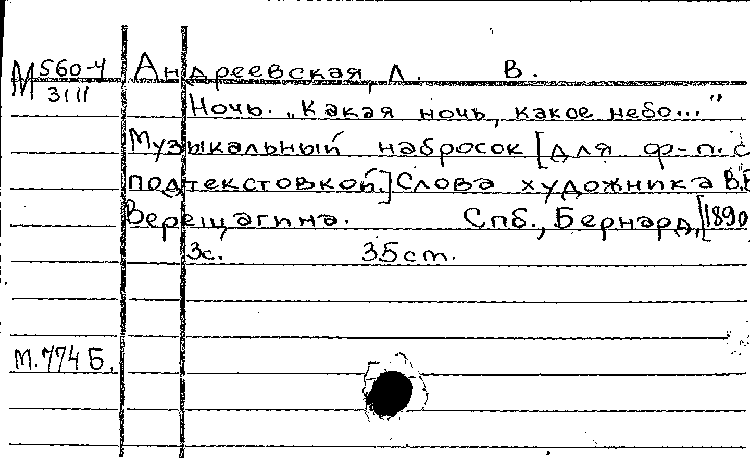 М 560-4 Андреевская, Л. В.
3111
Ночь. „Какая ночь, какое небо..."
Музыкальный набросок [для ф-п. с
подтекстовкой.] Слова художника В.В
Верещагина. Спб., Бернард, [1890
3с. 35cm.
М.774 Б.